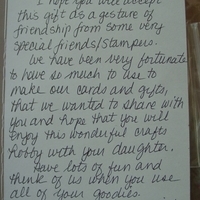 I hope you will accept
this gift as a gesture of
friendship from some very
special friends/stampers.
We have been very fortunate
to have so much to use to
make our cards and gifts,
that we wanted to share with
you and hope that you will
enjoy this wonderful crafts
hobby with your daughter.
Have lots of fun and
think of us when you use
all of your goodies.